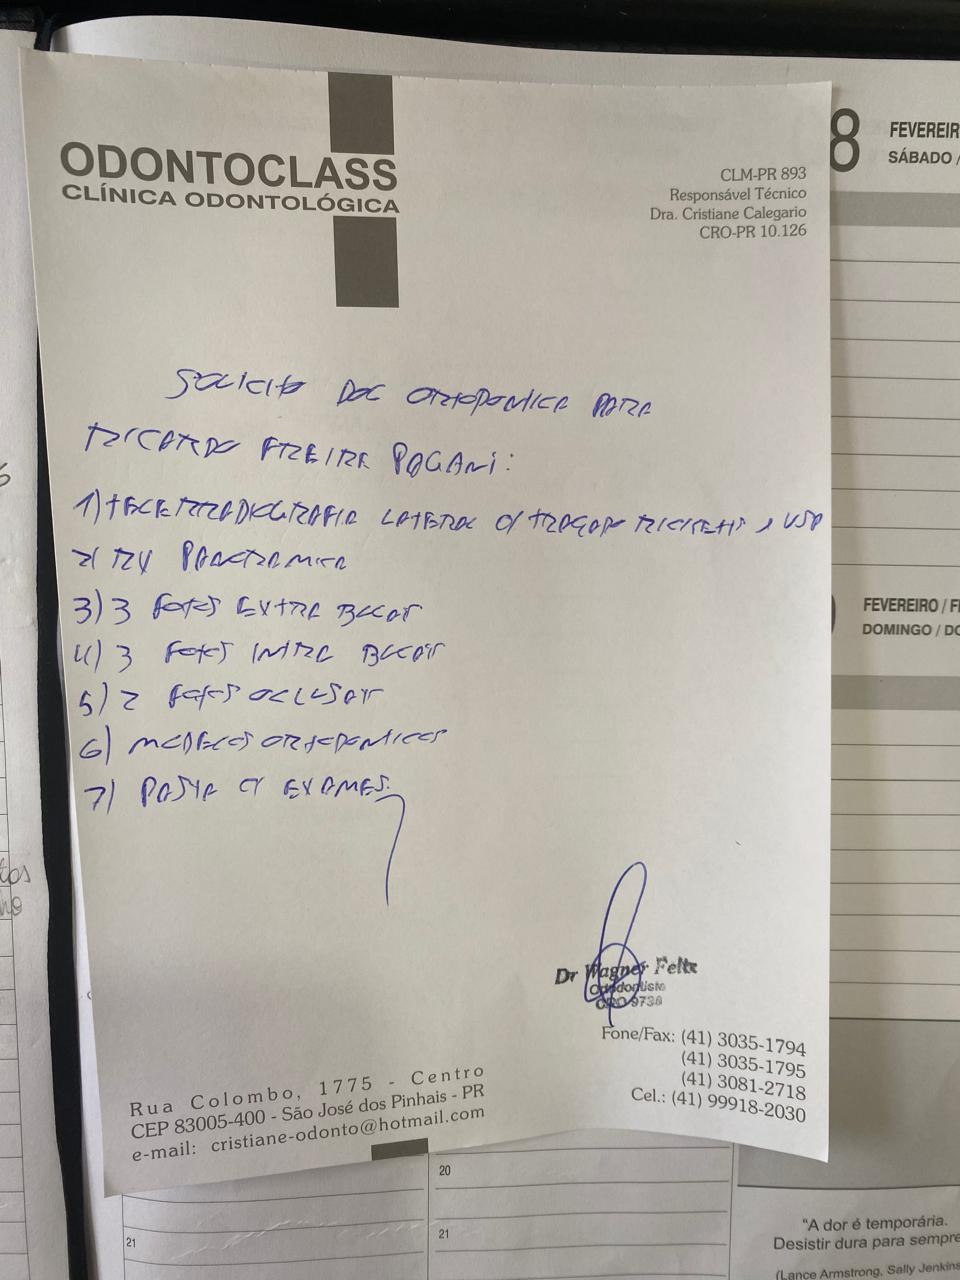 ODONTOCLASS
CLÍNICA ODONTOLÓGICA
CLM-PR 893
Responsável Técnico
Dra. Cristiane Calegario
CRO-PR 10.126
8
FEVEREIR
SÁBADO /
SOLICITO DOC ORTODONTICA PARA
RICARDO FREIRE PAGANI:
1) TELERRADIOGRAFIA LATERAL C/ TRAÇADO RICKETTS E USP
2) RX PANORAMICA
3) 3 FOTOS EXTRA BUCAIS
4) 3 FOTOS INTRA BUCAIS
5) 2 FOTOS OCLUSAIS
6) MODELOS ORTODONTICOS
7) PASTA C/ EXAMES.
FEVEREIRO / F
DOMINGO / DO
Dr Wagner Felix
Ortodontista
CRO 9738
Fone/Fax: (41) 3035-1794
(41) 3035-1795
(41) 3081-2718
Cel.: (41) 99918-2030
Rua Colombo, 1775 - Centro
CEP 83005-400 - São José dos Pinhais - PR
e-mail: cristiane-odonto@hotmail.com
20
21
21
"A dor é temporária.
Desistir dura para sempre
(Lance Armstrong, Sally Jenkins